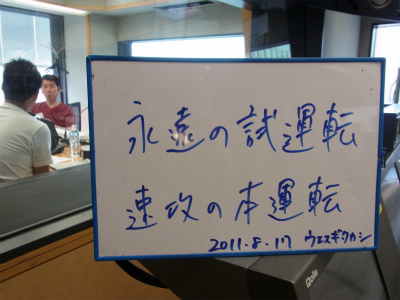 永遠の試運転
速攻の本運転
2011.8.17 ウエスギタカシ